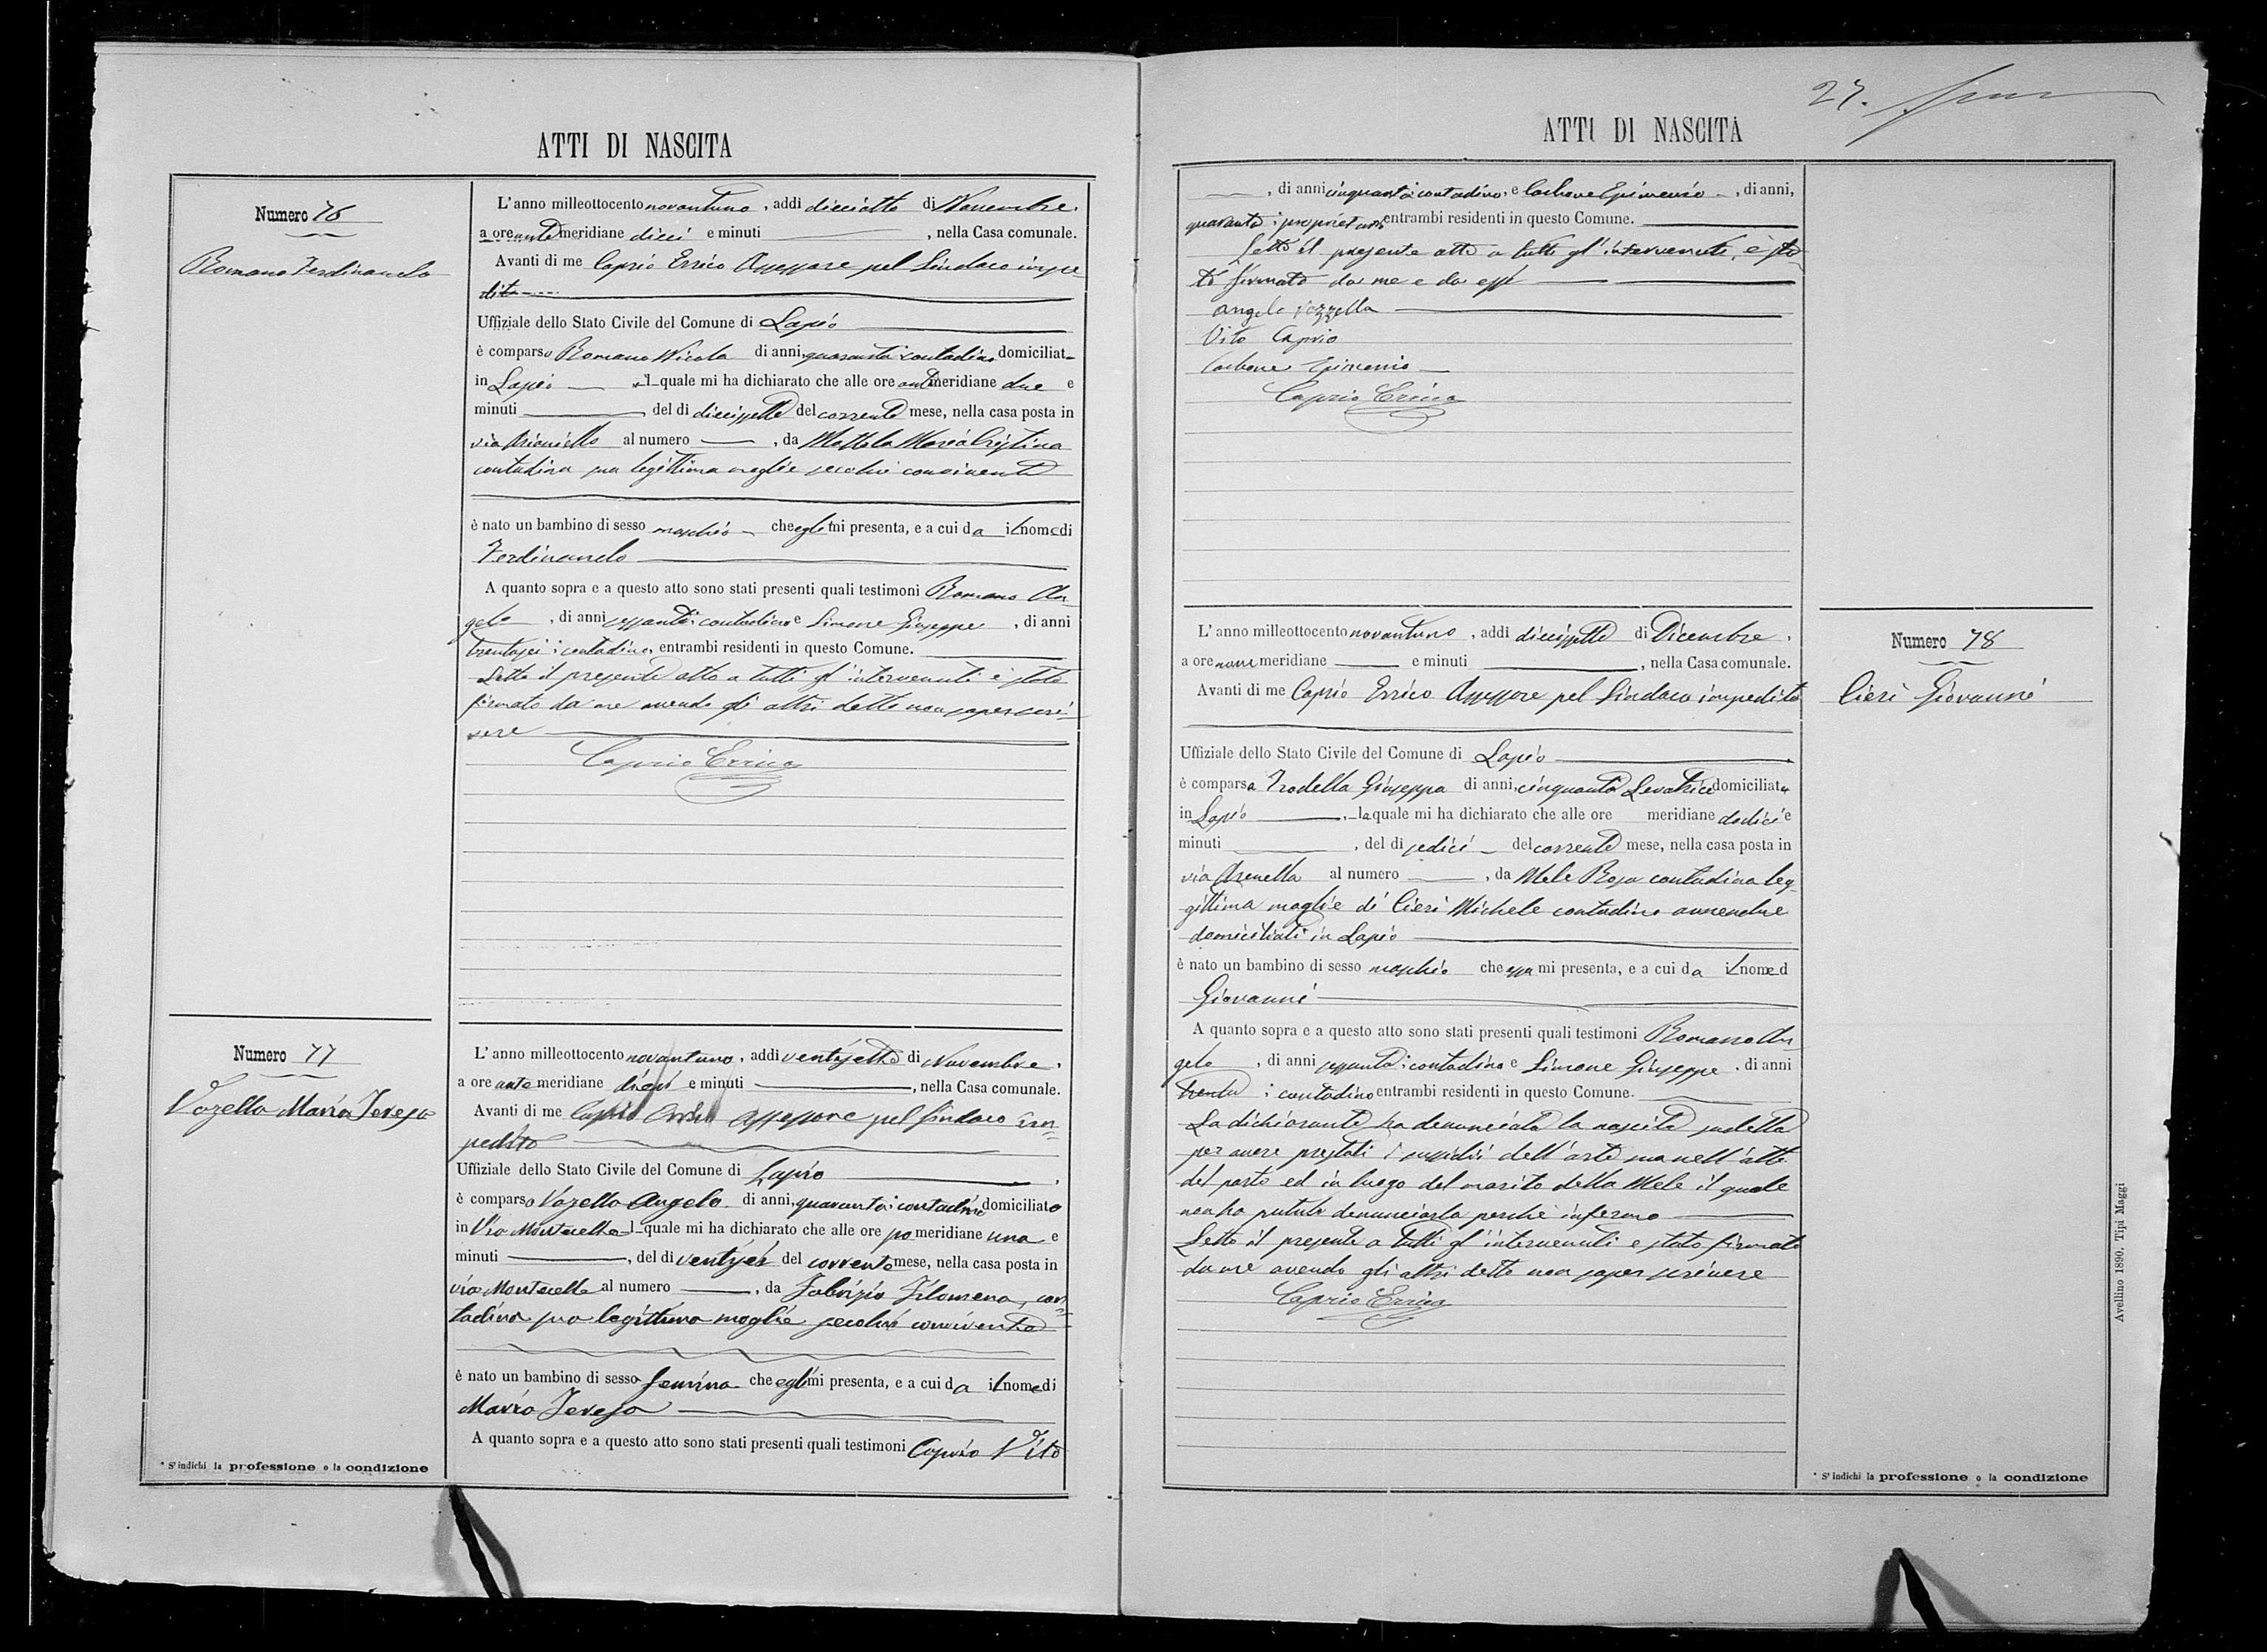 ATTI DI NASCITA
Numero 76
Romano Ferdinando
L'anno milleottocentonovantuno, addi dieciotto di Novembre,
a ore antemeridiane dieci e minuti, nella Casa comunale.
Avanti di me Caprio Errico Assessore pel Sindaco impe
dito
Uffiziale dello Stato Civile del Comune di Lapio
è comparso Romano Nicola di anni, quaranta contadino domiciliat
in Lapio il quale mi ha dichiarato che alle ore antimeridiane due e
minuti, del di diecissette del corrente mese, nella casa posta in
via al numero, da Mottola Maria Cristina
contadina sua legittima moglie secolui convivente
è nato un bambino di sesso maschio che egli mi presenta, e a cui da il nome di
Ferdinando
A quanto sopra e a questo atto sono stati presenti quali testimoni Romano An
gelo, di anni sessanta: contadino e Simone Giuseppe, di anni
trentasei: contadino, entrambi residenti in questo Comune.
Letto il presente atto a tutti gl'intervenuti è stato
firmato da me avendo gli altri detto non saper scri
vere
Caprio Errico
Numero 77
Vozella Maria Teresa
L'anno milleottocentonovantuno, addi ventisette di Novembre,
a ore ante meridiane dieci e minuti, nella Casa comunale.
Avanti di me Caprio Errico Assessore pel Sindaco im=
pedito
Uffiziale dello Stato Civile del Comune di Lapio
è comparso Vozella Angelo di anni, quaranta: contadino domiciliato
in Via l quale mi ha dichiarato che alle ore pomeridiane una e
minuti, del di ventisei del corrente mese, nella casa posta in
via al numero, da Fabrizio Filomena, con=
tadina sua legittima moglie secolui convivente
è nato un bambino di sesso femina che egli mi presenta, e a cui da il nome di
Maria Teresa
A quanto sopra e a questo atto sono stati presenti quali testimoni Caprio Vito
* S'indichi la professione o la condizione
27.
ATTI DI NASCITA
, di anni cinquanta: contadino, e Carbone Epimenio, di anni,
quaranta: proprietario entrambi residenti in questo Comune.
Letto il presente atto a tutti gl'intervenuti, è sta
to firmato da me e da essi
angelo vozzella
Vito Caprio
Carbone Epimenio
Caprio Errico
L'anno milleottocentonovantuno, addi diecissette di Dicembre,
a ore nove meridiane e minuti, nella Casa comunale.
Numero 78
Cieri Giovanni
Avanti di me Caprio Errico Assessore pel Sindaco impedito
Uffiziale dello Stato Civile del Comune di Lapio
è comparsa Trodella Giuseppa di anni, cinquanta Levatrice domiciliata
in Lapio, la quale mi ha dichiarato che alle ore meridiane dodici e
minuti, del di sedici del corrente mese, nella casa posta in
via Arenella al numero, da Mele Rosa contadina leg
gittima moglie di Cieri Michele contadino amendue
domiciliati in Lapio
è nato un bambino di sesso maschio che essa mi presenta, e a cui da il nome d
Giovanni
A quanto sopra e a questo atto sono stati presenti quali testimoni Romano An
gelo, di anni sessanta: contadino e Simone Giuseppe, di anni
trenta: contadino entrambi residenti in questo Comune.
La dichiarante ha denunciata la nascita sudetta
per avere prestati i sussidi dell'arte sua nell'atto
del parto ed in luogo del marito della Mele il quale
non ha potuto denunciarla perchè infermo
Letto il presente a tutti gl'intervenuti e stato firmato
da me avendo gli altri detto non saper scrivere
Caprio Errico
* S'indichi la professione o la condizione
Avellino 1890. Tipi Maggi